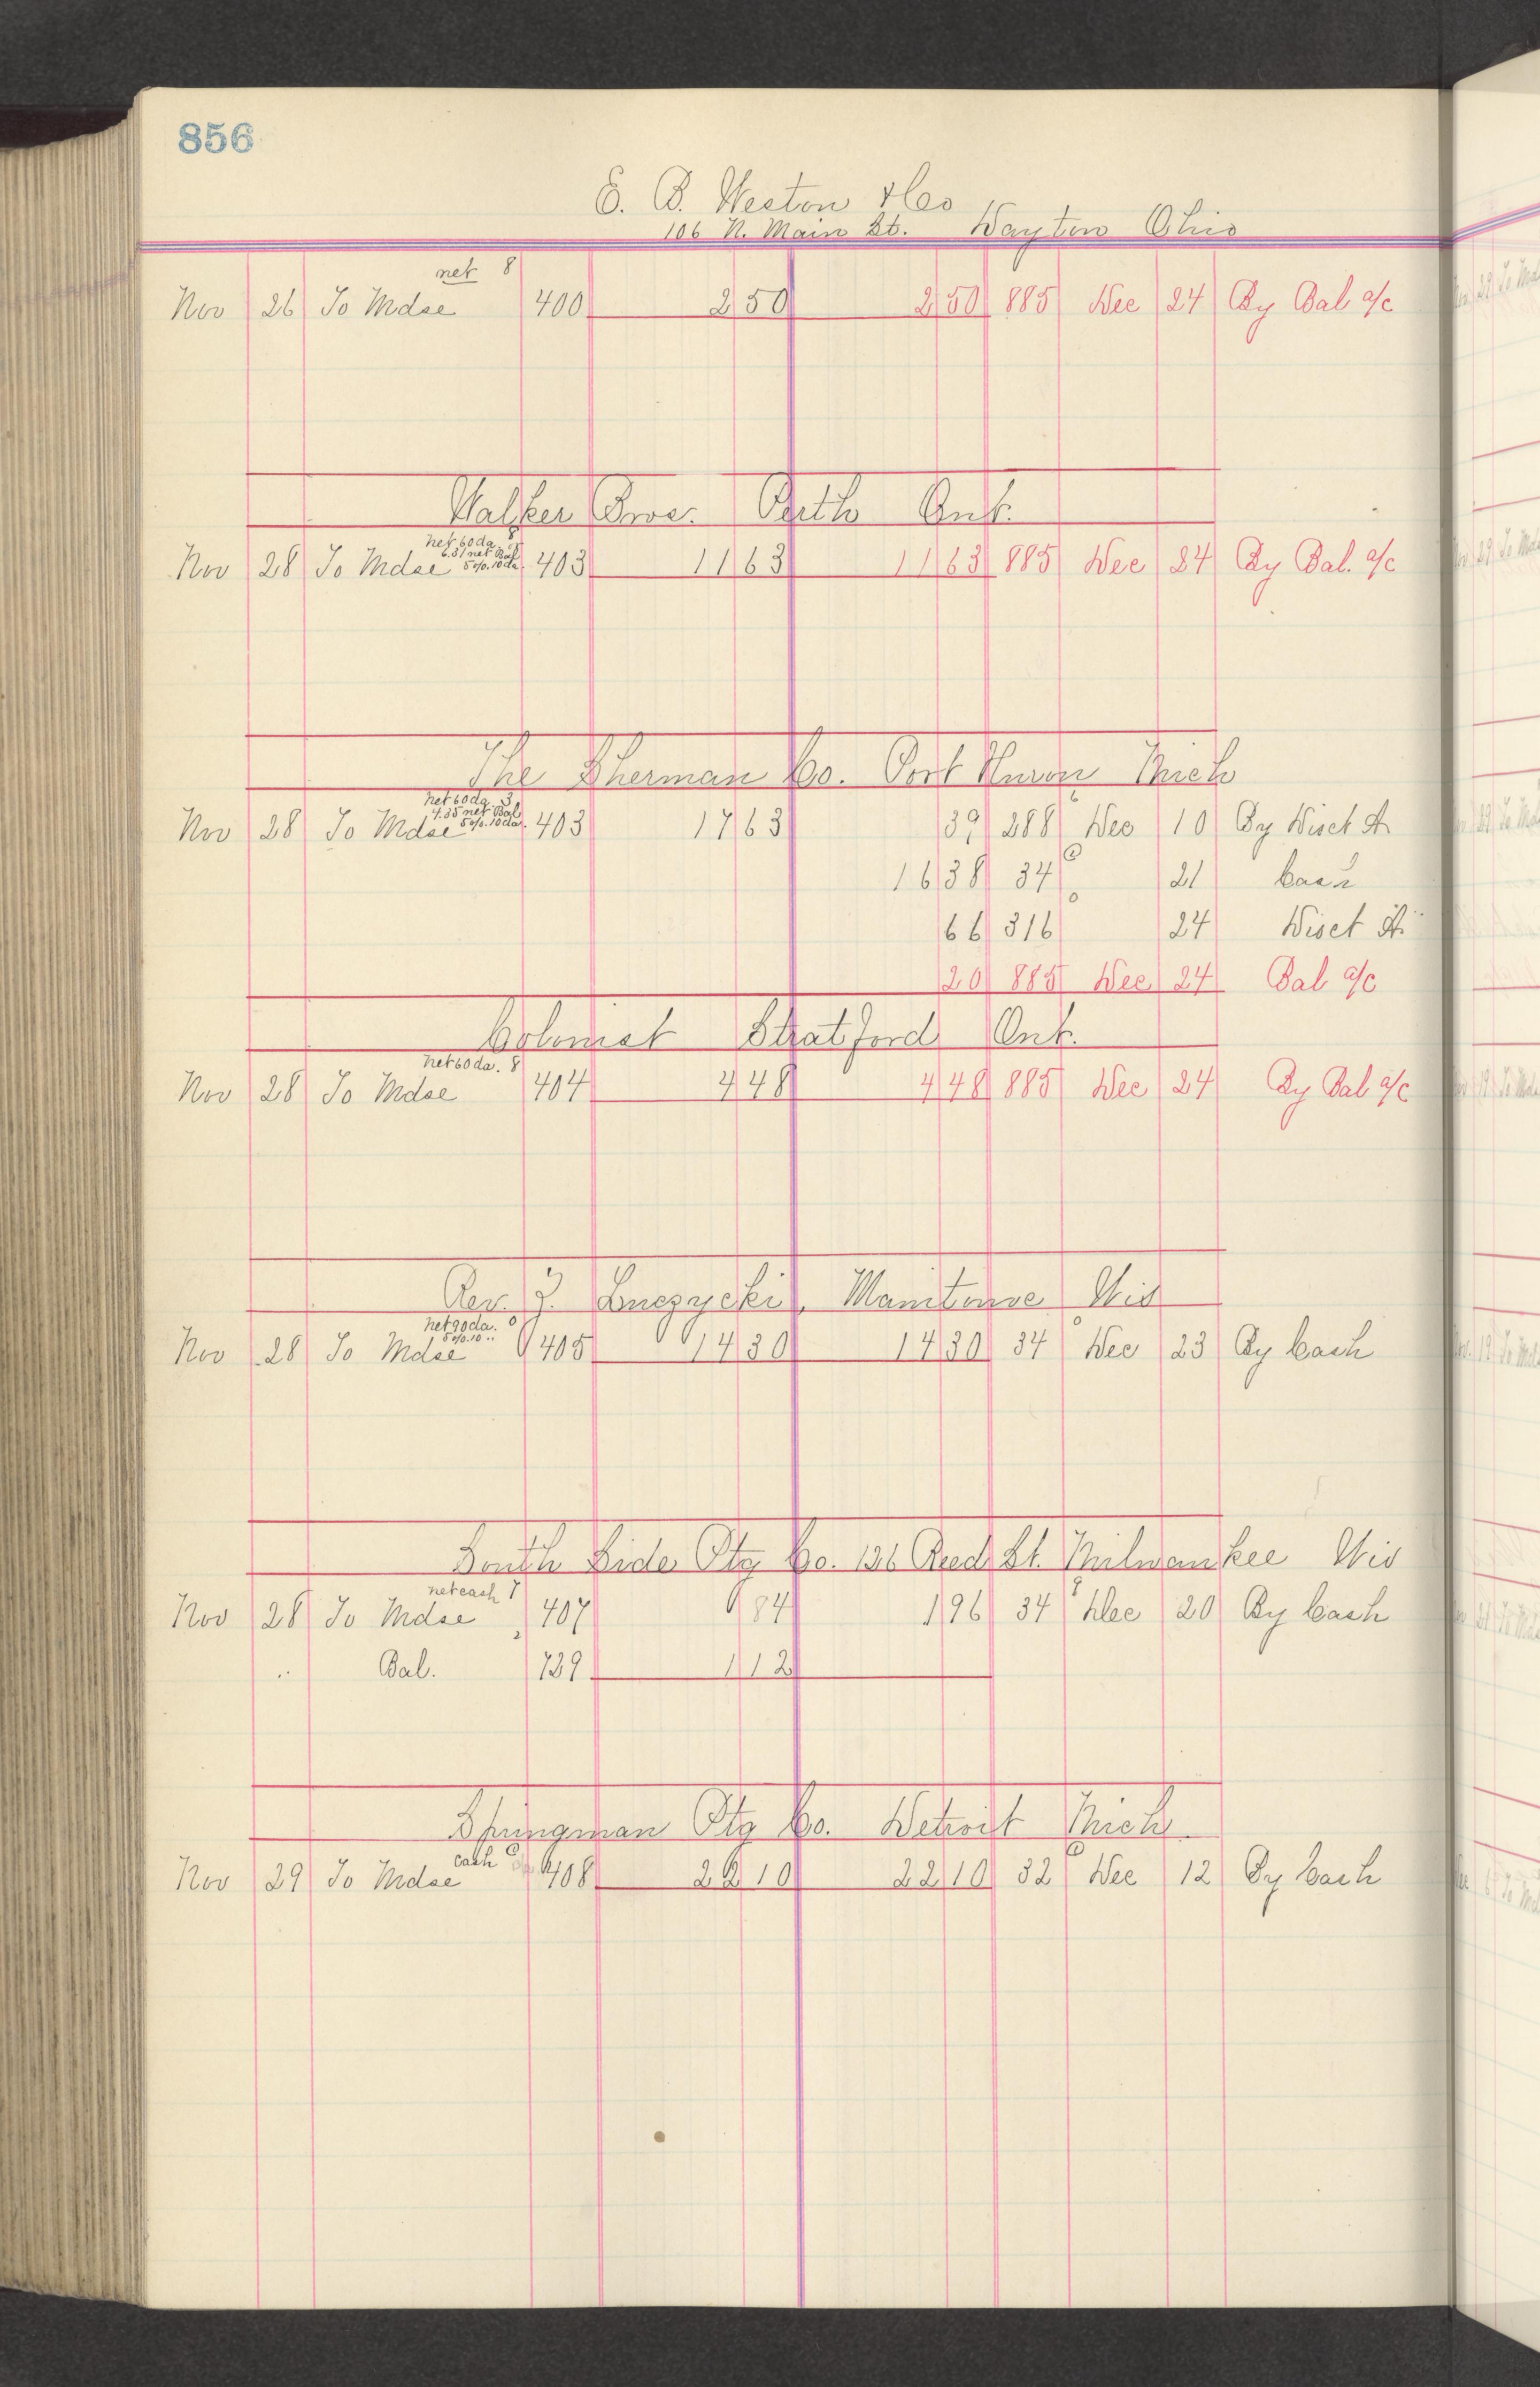 856
E. B. Weston & Co
106 N. Main St. Dayton Ohio
net 8
Nov 26 To Mdse 400 2 50 2 50 885 Dec 24 By Bal a/c
Walker Bros. Perth Ont.
net 60 da 8
6.31 net Bal
Nov 28 To Mdse 5% 10 da. 403 11 63 11 63 885 Dec 24 By Bal. a/c
The Sherman Co. Port Huron Mich
net 60 da. 3
4.35 net Bal
Nov 28 To Mdse 5% 10 da. 403 17 63 39 288 Dec 10 By Disct A
16 38 34 21 Cash
66 316 24 Disct A
20 885 Dec 24 Bal a/c
Colonist Stratford Ont.
net 60 da. 8
Nov 28 To Mdse 404 4 48 4 48 885 Dec 24 By Bal a/c
Rev. J. Luczycki, Manitowoc Wis
net 90 da.
5% 10 "
Nov 28 To Mdse 405 14 30 14 30 34 Dec 23 By Cash
South Side Ptg Co. 126 Reed St. Milwaukee Wis
net cash 7
Nov 28 To Mdse 407 84 1 96 34 Dec 20 By Cash
" Bal. 739 1 12
Springman Ptg Co. Detroit Mich
cash
Nov 29 To Mdse 408 22 10 22 10 32 Dec 12 By Cash